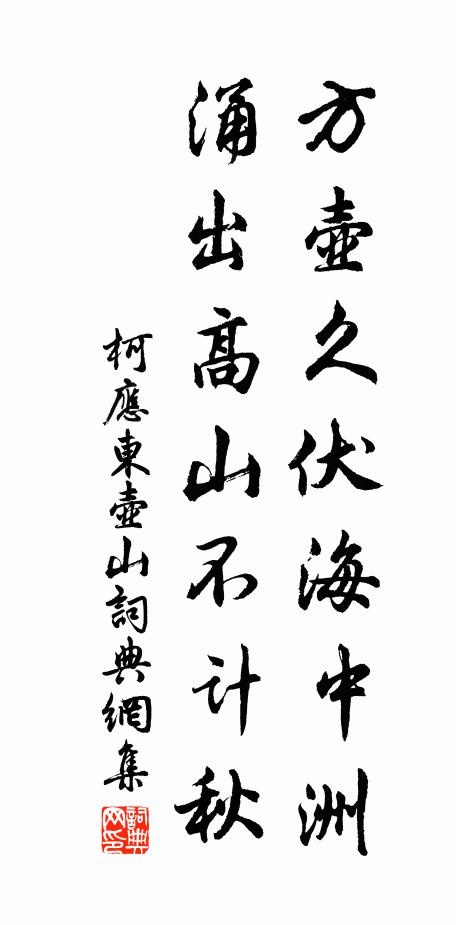 方壺久伏海中洲
涌出高山不計秋
柯應東壺山詞典網集
詞典網印